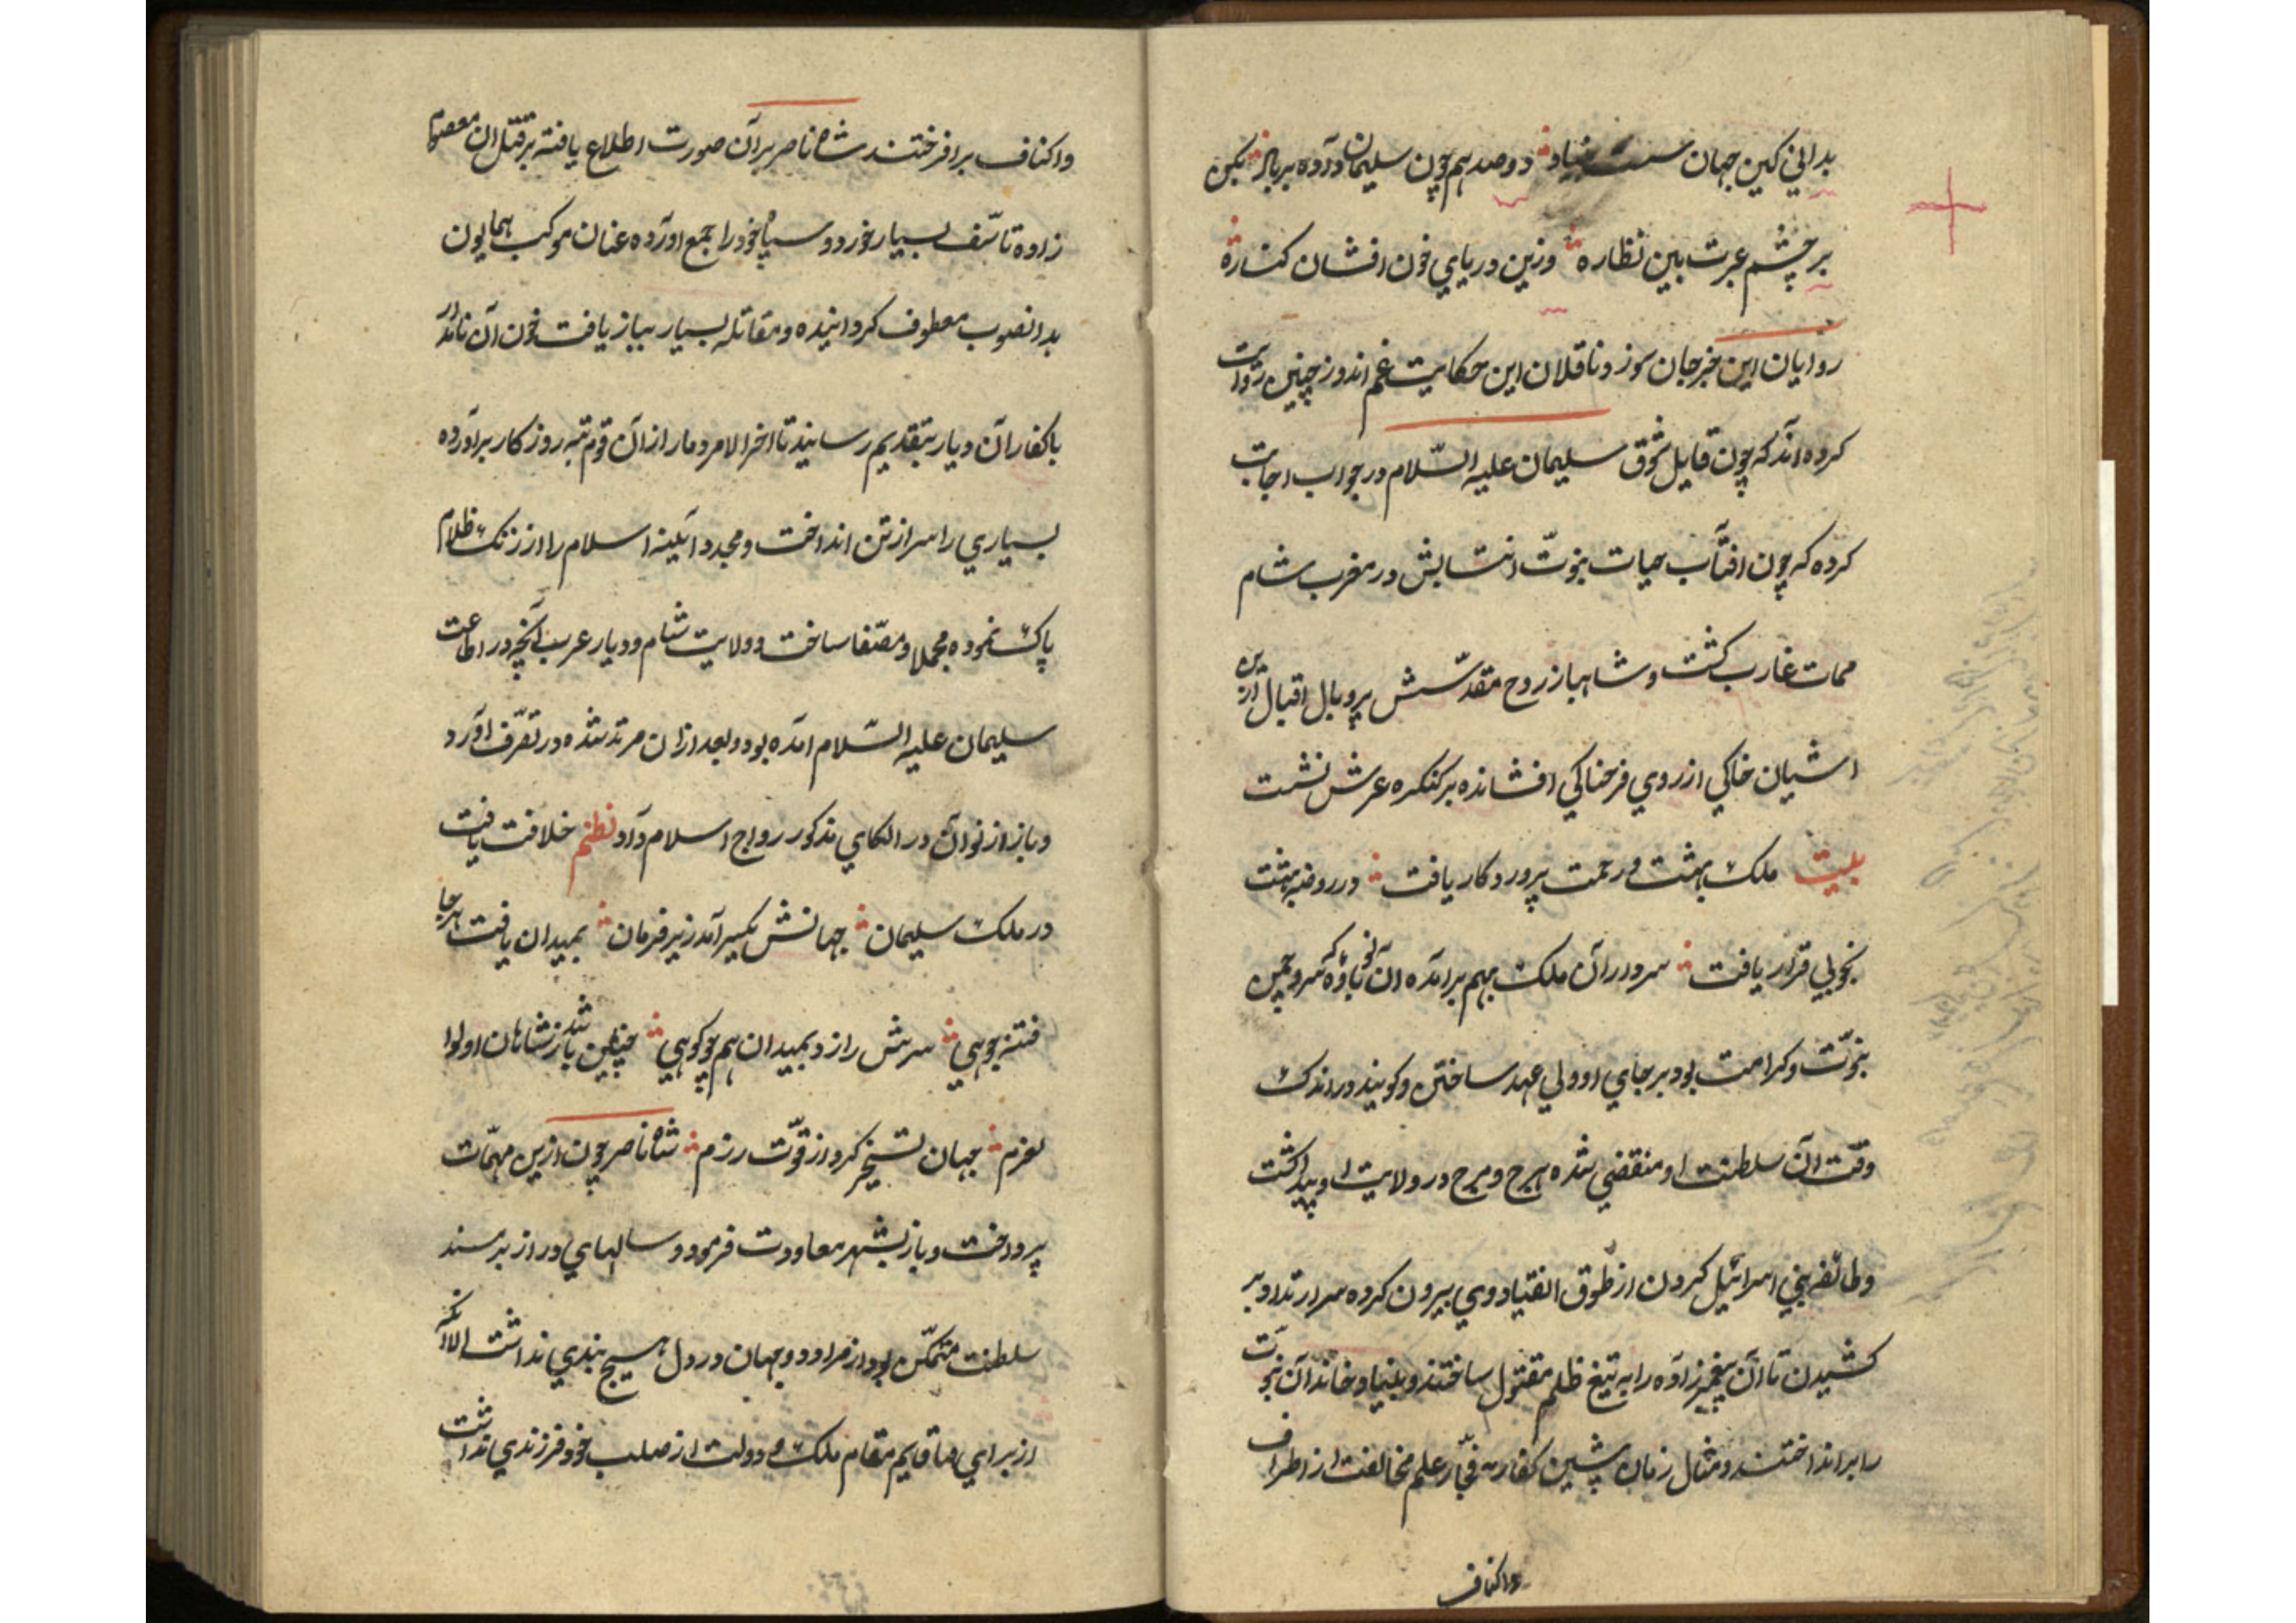 بداني كين جهان سست بنياد دو صد هم چون سليمان داده بر باد بكن
بر چشم عبرت بين نظاره وزين درياي خون افشان كناره
روايان اين خبر جان سوز و ناقلان اين حكايت غم اندوز چنين روايت
كرده اند كه چون قايل شوق سليمان عليه السّلام در جواب اجابت
كرده كه چون افتآب حيات نبوّت انتسابش در مغرب شام
ممات غارب كشت و شاهباز روح مقدّسش پر و بال اقبال ازين
اشيان خاكي از روي فرحناكي افشانده بر كنكره عرش نشست
بيت ملك بهشت و رحمت پروردكار يافت در روضه بهشت
بخوبي قرار يافت سرور آن ملك بهم برامده آن نوباوه كه سرو چمن
نبوّت و كرامت بود بر جاي او ولي عهد ساختن و كويند در اندك
وقت آن سلطنت او منقضي شده هرج و مرج در ولايت او پيدا كشت
و طائفه بني اسرائيل كردن از طوق انقياد وي بيرون كرده سر ارتداد بر
كشيدن تا آن پيغمبر زاده را به تيغ ظلم مقتول ساختند و بنياد خاندان نبوّت
را بر انداختند و مثال زمان پيشين كفار فجّار علم مخالفت از اطراف
واكناف
واكناف بر افرختند شاه ناصر بر آن صورت اطلاع يافته بر قتل ان معصوم
زاده تاسّف بسيار خورد و سپاه خود را جمع آورده عنان موكب همايون
بدانصوب معطوف كردانيده و مقاتله بسيار بباز يافت خون آن نامدار
با كفار آن ديار بتقديم رسانيد تا اخر الامر دمار از آن قوم تبه روزكار برآورده
بسياري را سر از تن انداخت و مجددا آيينه اسلام را از زنك ظلام
پاك نموده مجلا و مصّفا ساخت و ولايت شام و ديار عرب آنچه در اطاعت
سليمان عليه السّلام آمده بود و بعد از ان مرتد شده در تصرّف اورد
و باز از نو آن در الكاي مذكور رواج اسلام داد نظم خلافت يافت
در ملك سليمان جهانش يكسر آمد زير فرمان بميدان يافت هر جا
فتنه جويي سرش را زد بميدان هم چو كويي چنين باشد ز شاهان اولوا
لعزم جهان تسخير كرد از قوّت رزم شاه ناصر چون ازين مهمّات
پرداخت و باز بشهر معاودت فرمود و سالهاي دراز بر مسند
سلطنت متمكّن بود از مراد دو جهان در دل هيچ بندي نداشت الا انكه
از براي قايم مقام ملك و دولت از صلب خود فرزندي نداشت